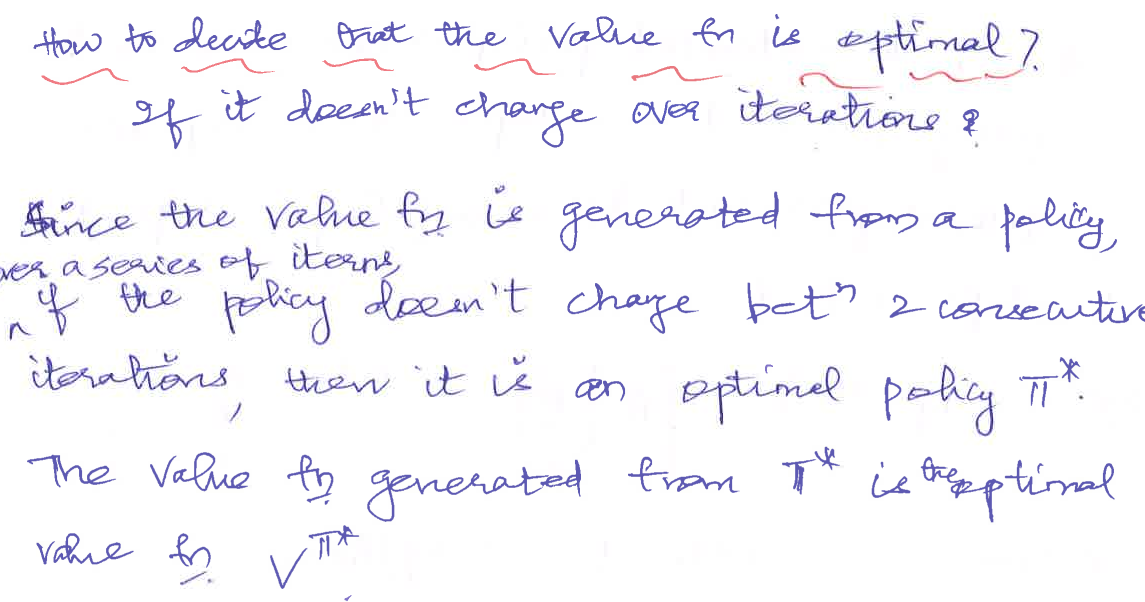 How to decide that the value fn is optimal?
If it doesn't change over iterations?
Since the value fn is generated from a policy,
over a series of iterns,
if the policy doesn't change betn 2 consecutive
iterations, then it is an optimal policy π*.
The value fn generated from π* is the optimal
value fn V^π*